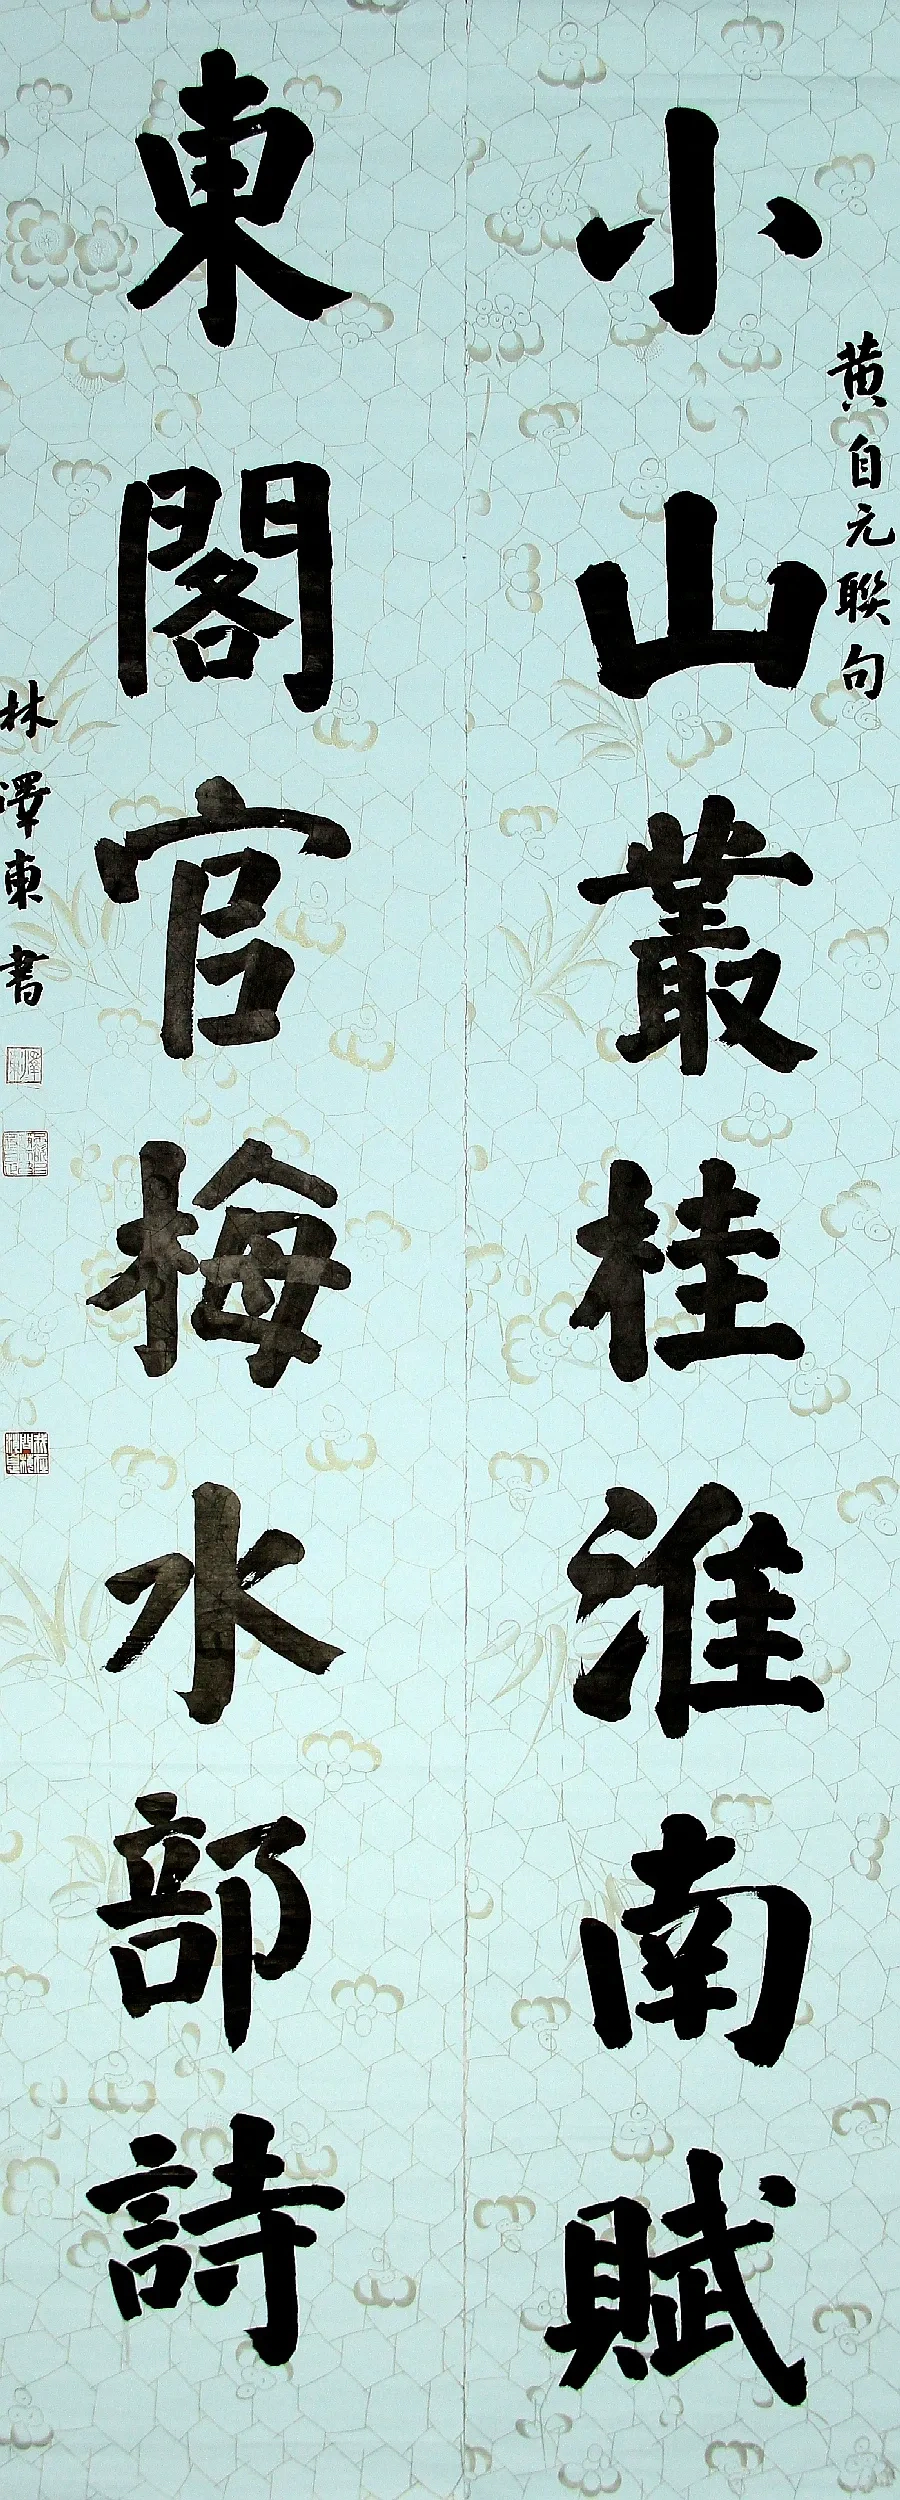 黄自元聯句
小山叢桂淮南賦
東閣官梅水部詩
林澤東書